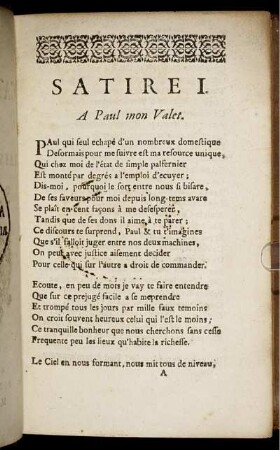 SATIRE I.
A Paul mon Valet.
PAul qui seul echapé d'un nombreux domestique
Desormais pour me suivre est ma resource unique,
Qui chez moi de l'état de simple palfernier
Est monté par degrés a l'emploi d'ecuyer;
Dis-moi, pourquoi le sort entre nous si bisare,
De ses faveurs pour moi depuis long-tems avare
Se plait en cent façons à me desesperer,
Tandis que de ses dons il aime à te parer;
Ce discours te surprend, Paul & tu t'imagines
Que s'il falloit juger entre nos deux machines,
On peut avec justice aisement decider
Pour celle qui sur l'autre a droit de commander.
Ecoute, en peu de mots je vay te faire entendre
Que sur ce prejugé facile a se meprendre
Et trompé tous les jours par mille faux temoins
On croit souvent heureux celui qui l'est le moins;
Ce tranquille bonheur que nous cherchons sans cesse
Frequente peu les lieux qu'habite la richesse.
Le Ciel en nous formant, nous mit tous de niveau,
A